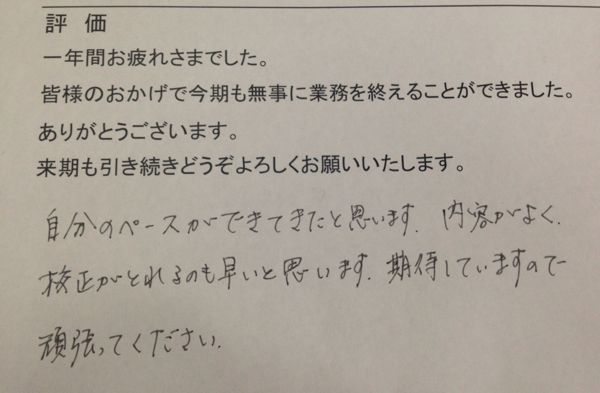 評 価
一年間お疲れさまでした。
皆様のおかげで今期も無事に業務を終えることができました。
ありがとうございます。
来期も引き続きどうぞよろしくお願いいたします。
自分のペースができてきたと思います. 内容がよく.
校正がとれるのも早いと思います. 期待していますので
頑張ってください.